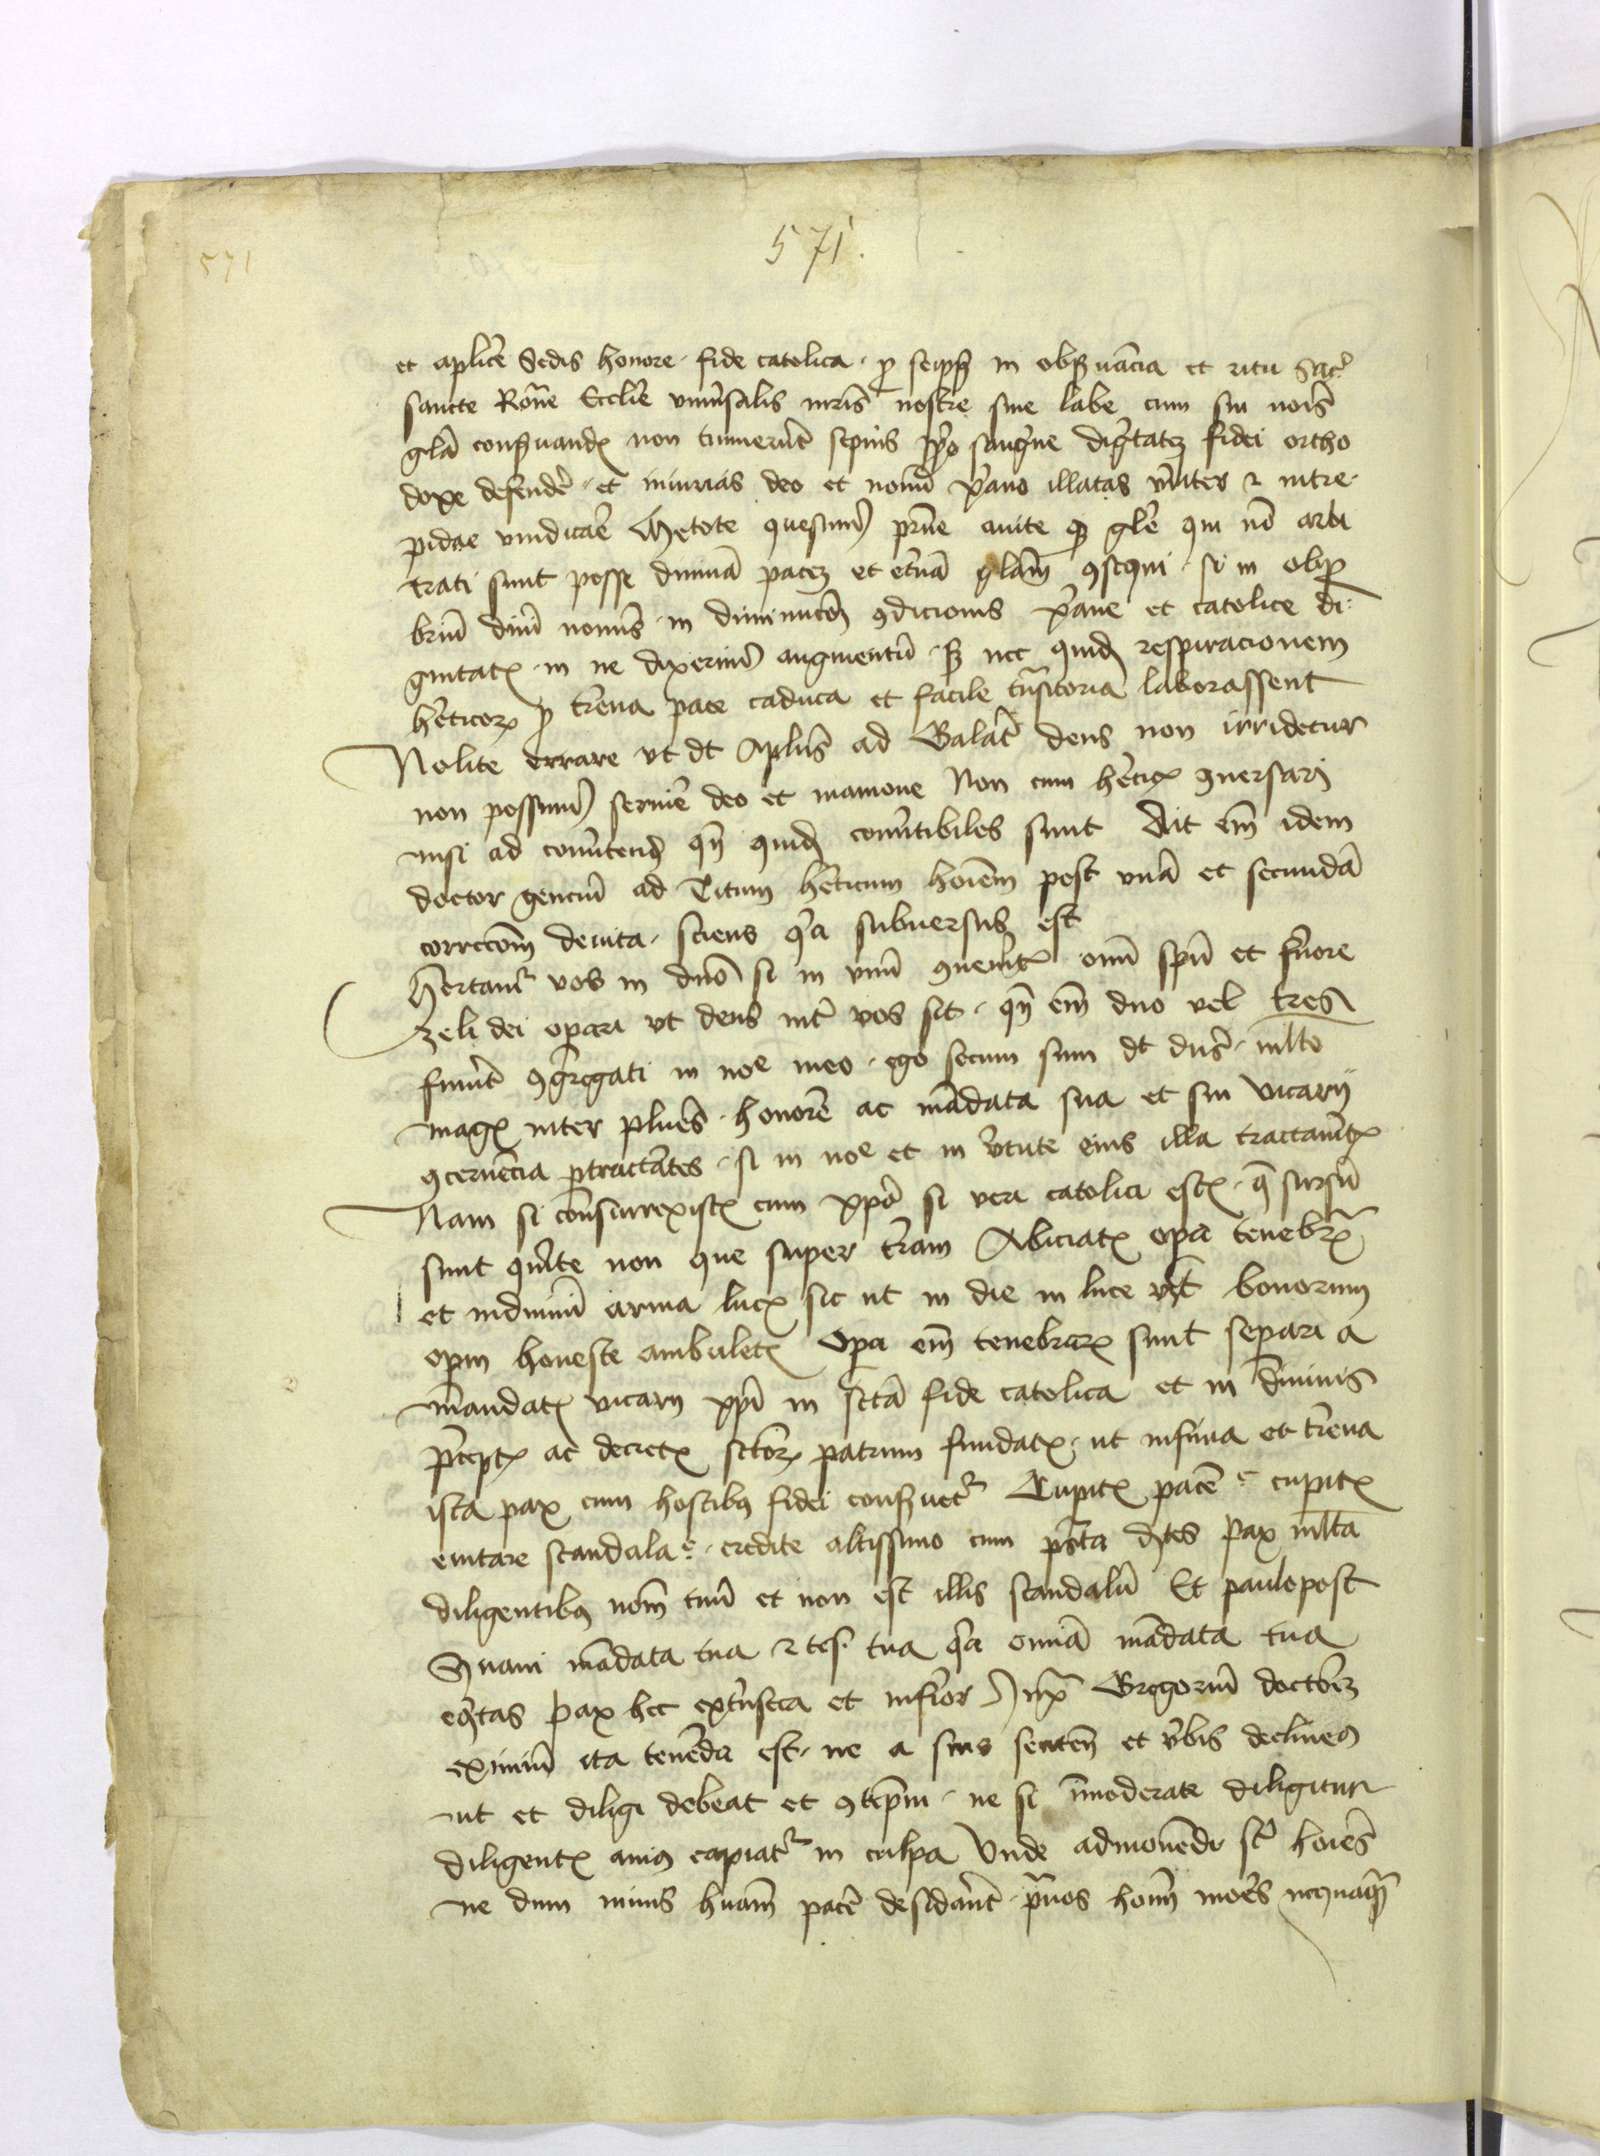 571
571
et aplice Sedis honore fide catolica p seipis in obsuancia et ritu sacr
sancte Rone Ecclie vniusalis mris nostre sine labe cum sui nois
gla consuande non timuerut sepius ppo sangne digtatez fidei ortho
doxe defende et iniurias deo et nomi xpano illatas viriter et intre
pidae vindicae quesumus prne auite glie qui no arbi
trati sunt posse diuina pacez et etna glam consequi si in obpro
briu diui nomis in diminucoz condicionis xpane et catolice di
gnitatis in ne dixerimus augmentu sz nec quide respiracionem
heticoz p trena pace caduca et facile tnsitoria laborassent
Nolite errare vt dt Aplus ad Galat deus non irridetur
non possumus seruire deo et mamone Non cum hetic conuersari
nisi ad conutend quide conutibiles sunt Ait em idem
doctor genciu ad Titum heticum hoiem post vna et secunda
correccom deuita sciens qa subuersus est
Hortamr vos in dno si in vnu conuenitis omi spu et fuore
zeli dei opari vt deus int vos sit em duo vel tres
fuint congregati in noe meo ego secum sum dt dns mlto
magis inter plues honore ac madata sua et sui vicarij
concernencia ptractates si in noe et in vtute eius illa tractauitis
Nam si consurrexistis cum xpo si veri catolici estis q sursu
sunt querite non que super tram Abiciatis opa tenebr
et induimi arma lucis sic ut in die in luce bonorum
opm honeste ambuletis Opa em tenebraz sunt separi a
mandatis vicarij xpi in scta fide catolica et in diuinis
pceptis ac decretis sctoz patrum fundatis ut infima et trena
ista pax cum hostibus fidei consuetr Cupitis pace cupitis
euitare scandala credite altissimo cum psta dtes Pax mlta
diligentibus nom tuu et non est illis scandalu Et paulopost
Suaui madata tua et tes tua qa omia madata tua
Pax hec extinseca et infior Grgoriu doctorez
eximiu ita teneda est ne a suis senten et vbis declines
ut et diligi debeat et contepni ne si inmoderate diligitur
diligentis anius capiatr in culpa Vnde admonedi st hoies
ne dum nimis huam pace desidant puos hoim moes nequaqm